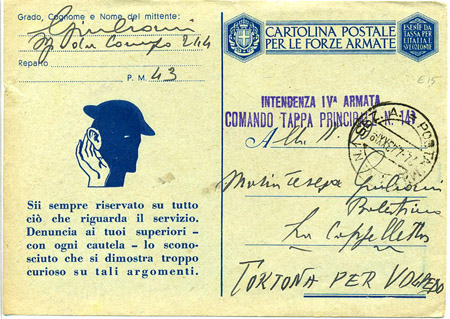 Grado, Cognome e Nome del mittente:
Giuliani
Reparto
P. M. 43
Sii sempre riservato su tutto
ciò che riguarda il servizio.
Denuncia ai tuoi superiori -
con ogni cautela - lo scono-
sciuto che si dimostra troppo
curioso su tali argomenti.
CARTOLINA POSTALE
PER LE FORZE ARMATE
ESENTE DA
TASSA PER
L'ITALIA E
INTENDENZA IVª ARMATA
COMANDO TAPPA PRINCIPALE N. 143
£ 15
POSTA
Alla
Teresa Giuliani
La Cappelletta
TORTONA PER VOLPEDO